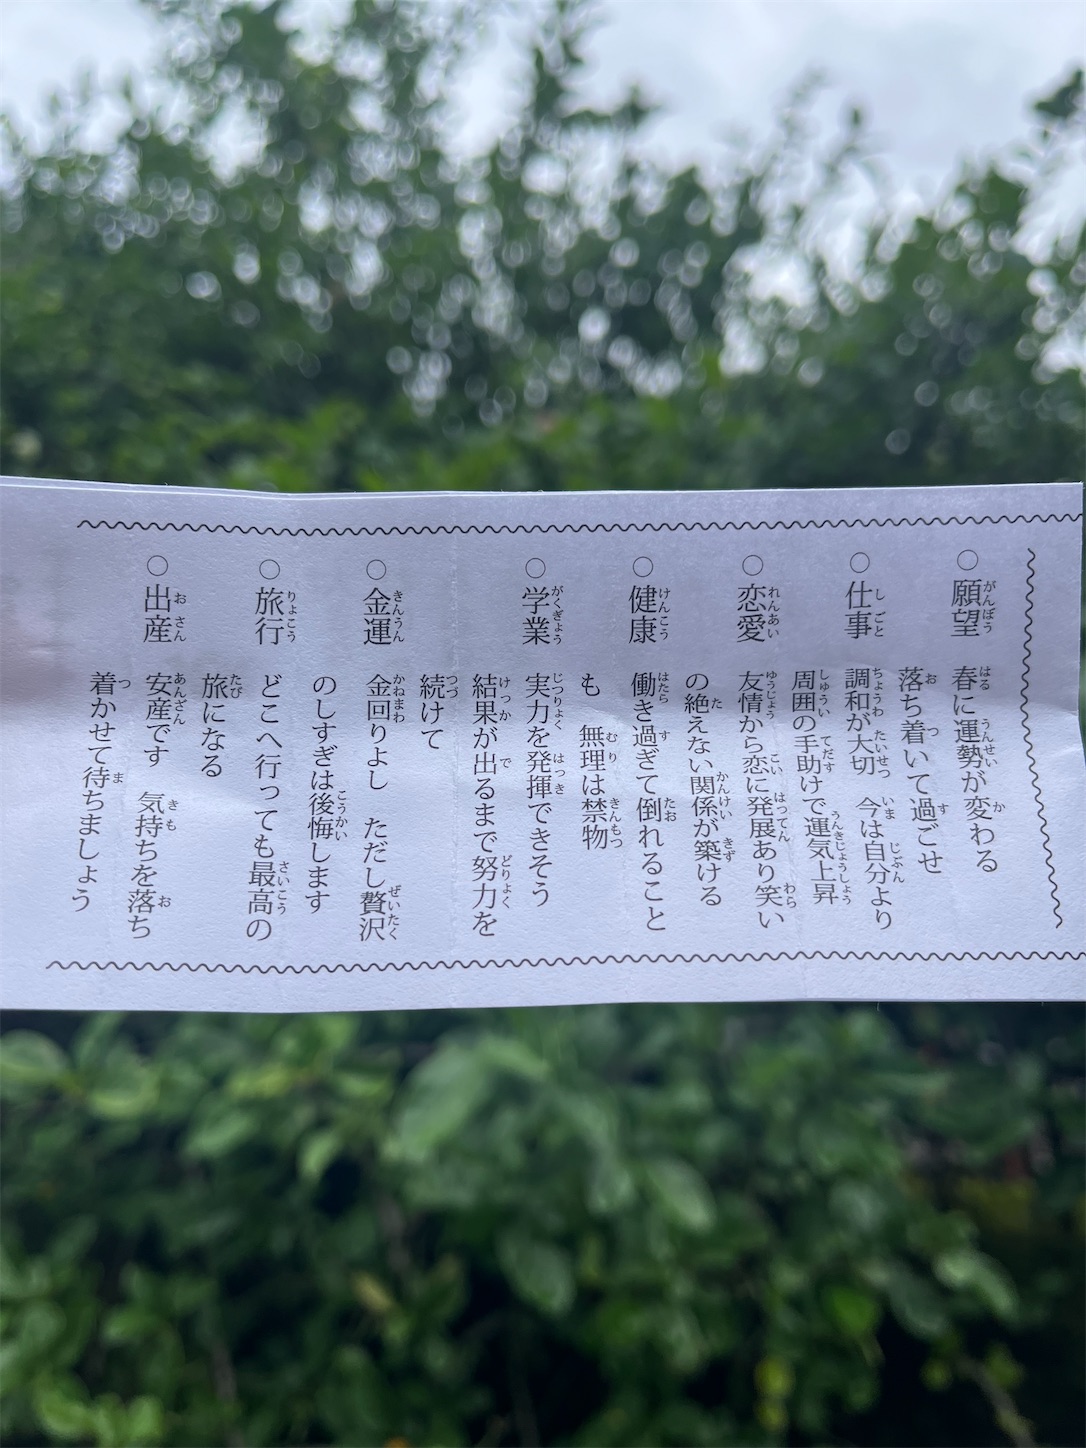 ○願望 春に運勢が変わる
落ち着いて過ごせ
○仕事 調和が大切 今は自分より
周囲の手助けで運気上昇
○恋愛 友情から恋に発展あり笑い
の絶えない関係が築ける
○健康 働き過ぎて倒れること
も 無理は禁物
○学業 実力を発揮できそう
結果が出るまで努力を
続けて
○金運 金回りよし ただし贅沢
のしすぎは後悔します
○旅行 どこへ行っても最高の
旅になる
○出産 安産です 気持ちを落ち
着かせて待ちましょう